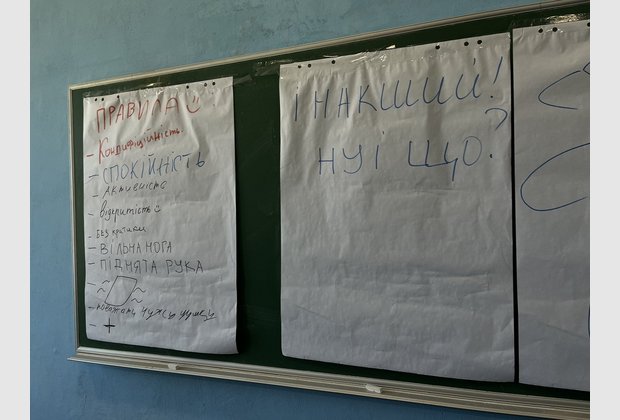 ПРАВИЛА
- Кондифіційність.
- СПОКІЙНІСТЬ
- Активність
- відкритість
- БЕЗ критики
- ВІЛЬНА НОГА
- ПІДНЯТА РУКА
- +
ІНАКШИЙ!
НУ І ЩО?